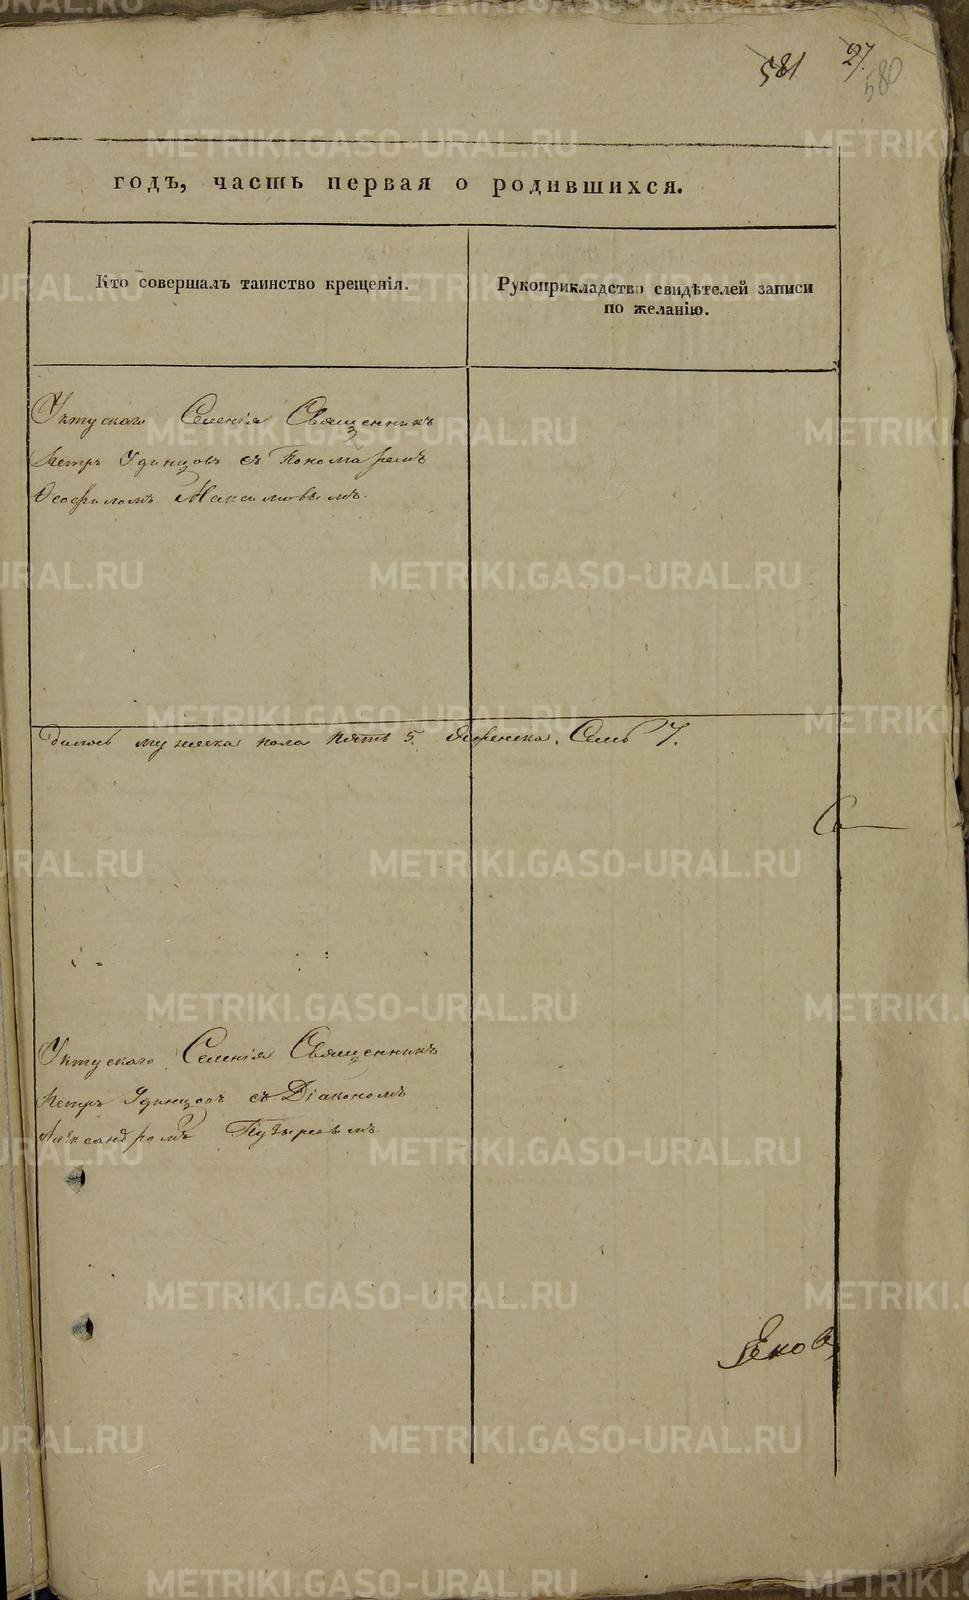 581 27.
580
годъ, часть первая о родившихся.
Кто совершалъ таинство крещенія.
Рукоприкладство свидѣтелей записи
по желанію.
Уктускаго Селенія Священникъ
Петръ Удинцовъ съ Пономаремъ
Ѳеофиломъ Максимовымъ.
дилось мужеска пола Пять 5. Женска. Семь 7.
Уктускаго Селенія Священникъ
Петръ Удинцовъ съ Діакономъ
Александромъ Пузыревымъ
METRIKI.GASO-URAL.RU